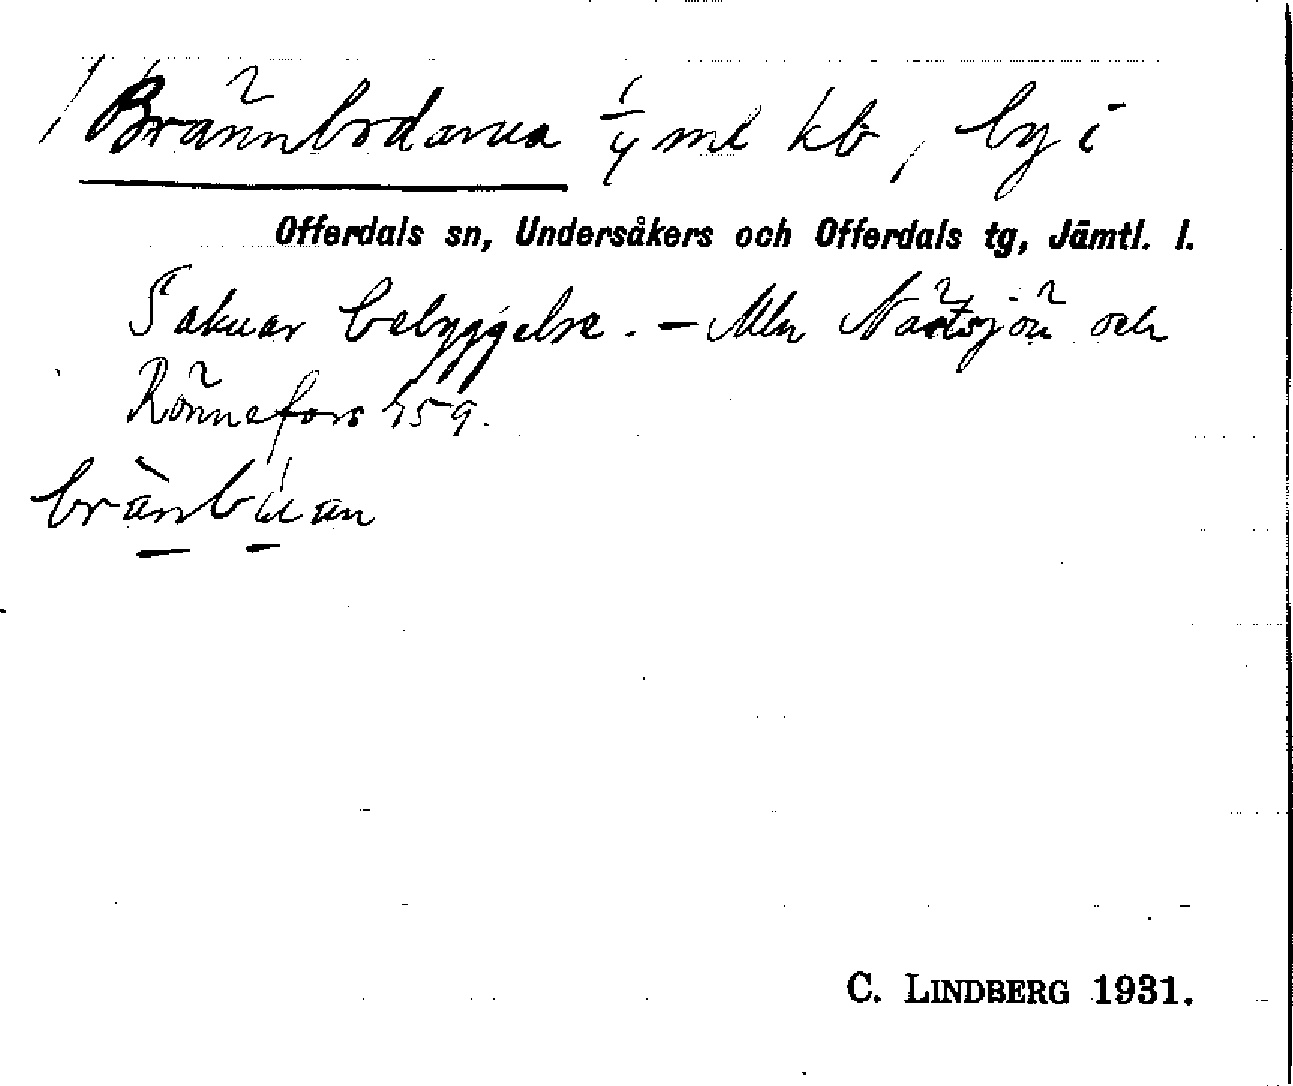 Brännbodarna 1/4 ml kb, by i
Offerdals sn, Undersåkers och Offerdals tg, Jämtl. l.
Saknar bebyggelse. – Mln Nätsjön och
Rönnefors 459.
brànbúan
C. LINDBERG 1931.